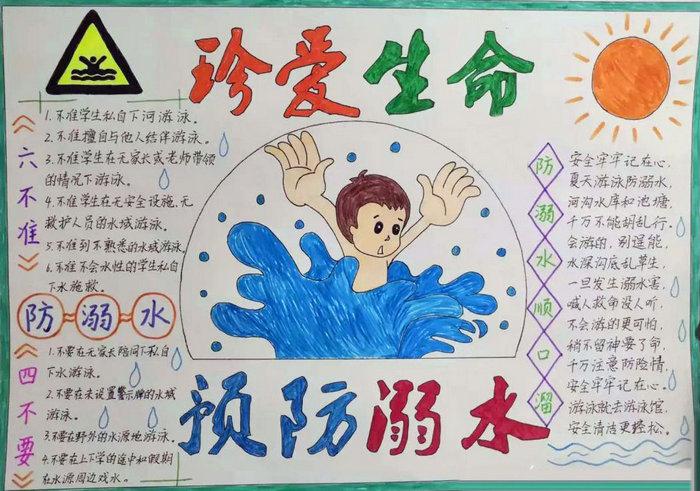 珍爱生命
六不准
1.不准学生私自下河游泳。
2.不准擅自与他人结伴游泳。
3.不准学生在无家长或老师带领
的情况下游泳。
4.不准学生在无安全设施、无
救护人员的水域游泳。
5.不准到不熟悉的水域游泳。
6.不准不会水性的学生私自
下水施救。
防溺水
四不要
1.不要在无家长陪同下私自
下水游泳。
2.不要在未设置警示牌的水域
游泳。
3.不要在野外的水源地游泳。
4.不要在上下学的途中和假期
在水源周边戏水。
预防溺水
防溺水顺口溜
安全牢牢记在心。
夏天游泳防溺水,
河沟水库和池塘,
千万不能胡乱行。
会游的,别逞能,
水深沟底乱草生,
一旦发生溺水害,
喊人救命没人听,
不会游的更可怕,
稍不留神要了命,
千万注意防险情,
安全牢牢记在心。
游泳就去游泳馆,
安全清洁更轻松。